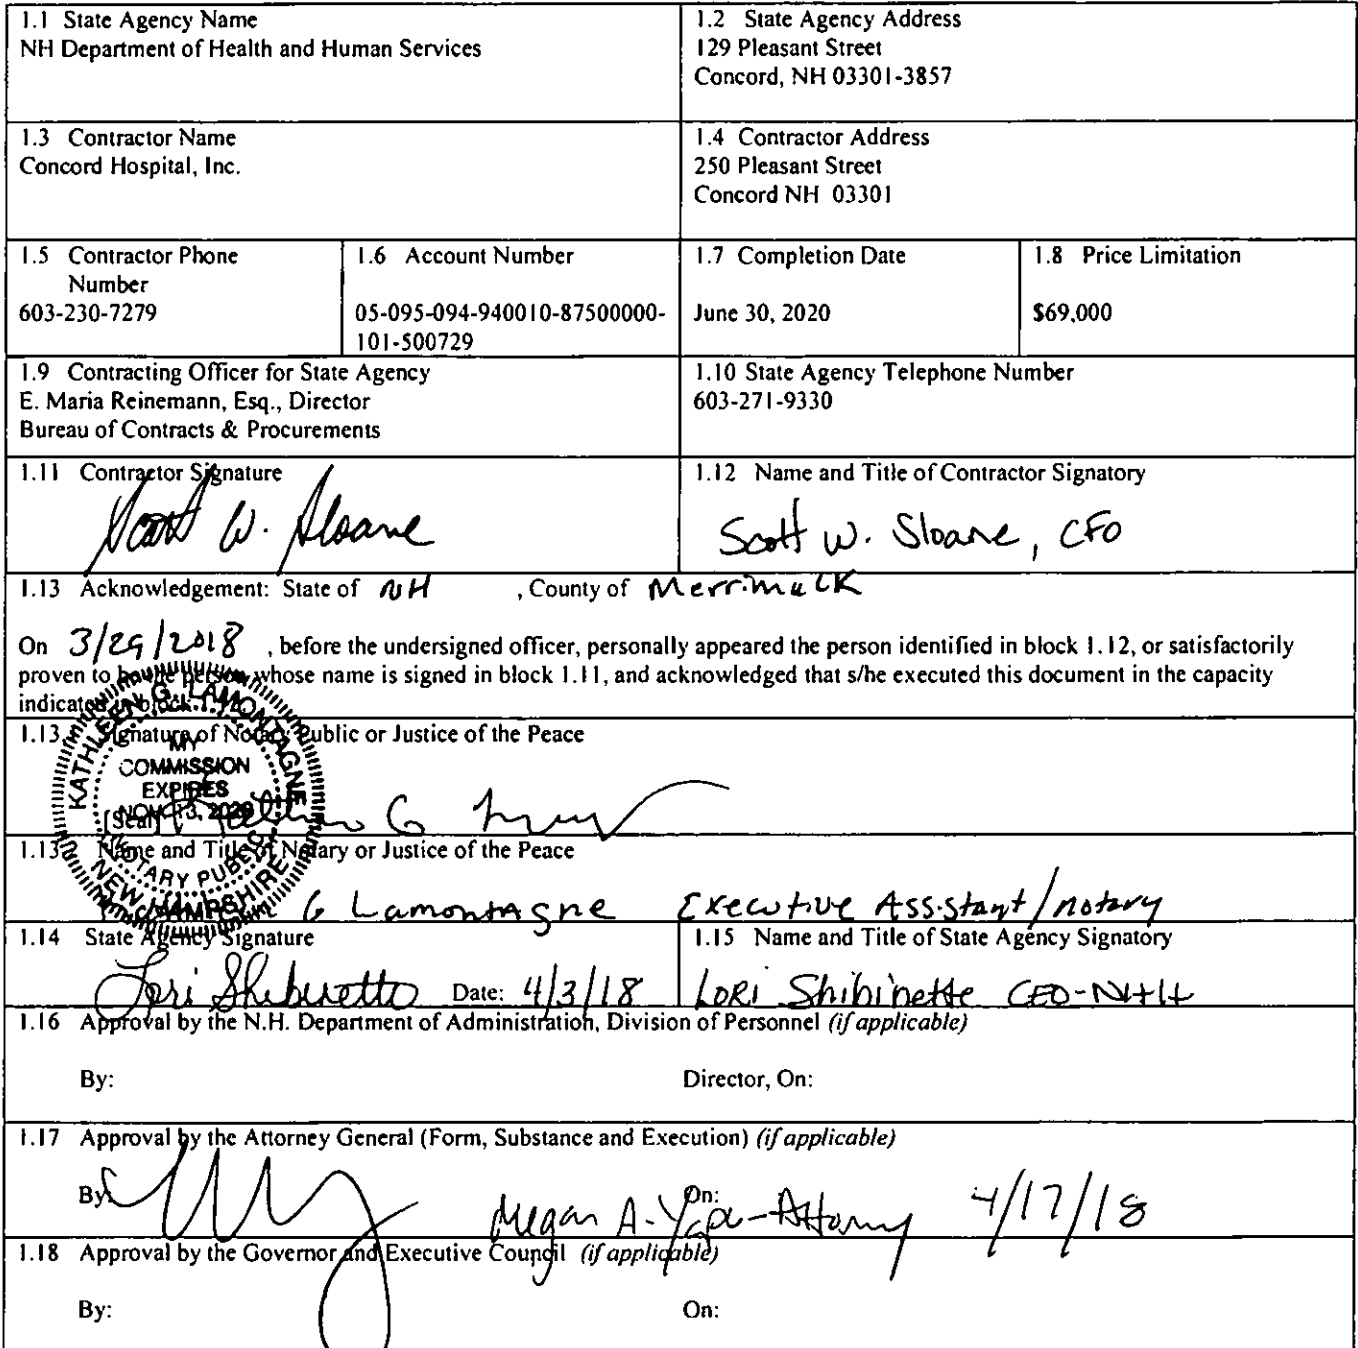 1.1 State Agency Name
NH Department of Health and Human Services
1.2 State Agency Address
129 Pleasant Street
Concord, NH 03301-3857
1.3 Contractor Name
Concord Hospital, Inc.
1.4 Contractor Address
250 Pleasant Street
Concord NH 03301
1.5 Contractor Phone
Number
603-230-7279
1.6 Account Number
05-095-094-940010-87500000-
101-500729
1.7 Completion Date
June 30, 2020
1.8 Price Limitation
$69,000
1.9 Contracting Officer for State Agency
E. Maria Reinemann, Esq., Director
Bureau of Contracts & Procurements
1.10 State Agency Telephone Number
603-271-9330
1.11 Contractor Signature
Scott W. Sloane
1.12 Name and Title of Contractor Signatory
Scott W. Sloane, CFO
1.13 Acknowledgement: State of NH , County of Merrimack
On 3/29/2018 , before the undersigned officer, personally appeared the person identified in block 1.12, or satisfactorily
proven to be the person whose name is signed in block 1.11, and acknowledged that s/he executed this document in the capacity
indicated in block 1.12.
1.13.1 Signature of Notary Public or Justice of the Peace
KATHLEEN G. LAMONTAGNE
MY
COMMISSION
EXPIRES
NOV. 13, 2020
NOTARY PUBLIC
NEW HAMPSHIRE
[Seal]
1.13.2 Name and Title of Notary or Justice of the Peace
G Lamontagne Executive Assistant/notary
1.14 State Agency Signature
Lori Shibinette Date: 4/3/18
1.15 Name and Title of State Agency Signatory
LORI Shibinette CEO-NHH
1.16 Approval by the N.H. Department of Administration, Division of Personnel (if applicable)
By: Director, On:
1.17 Approval by the Attorney General (Form, Substance and Execution) (if applicable)
By: On:
Megan A. - Attorney 4/17/18
1.18 Approval by the Governor and Executive Council (if applicable)
By: On: